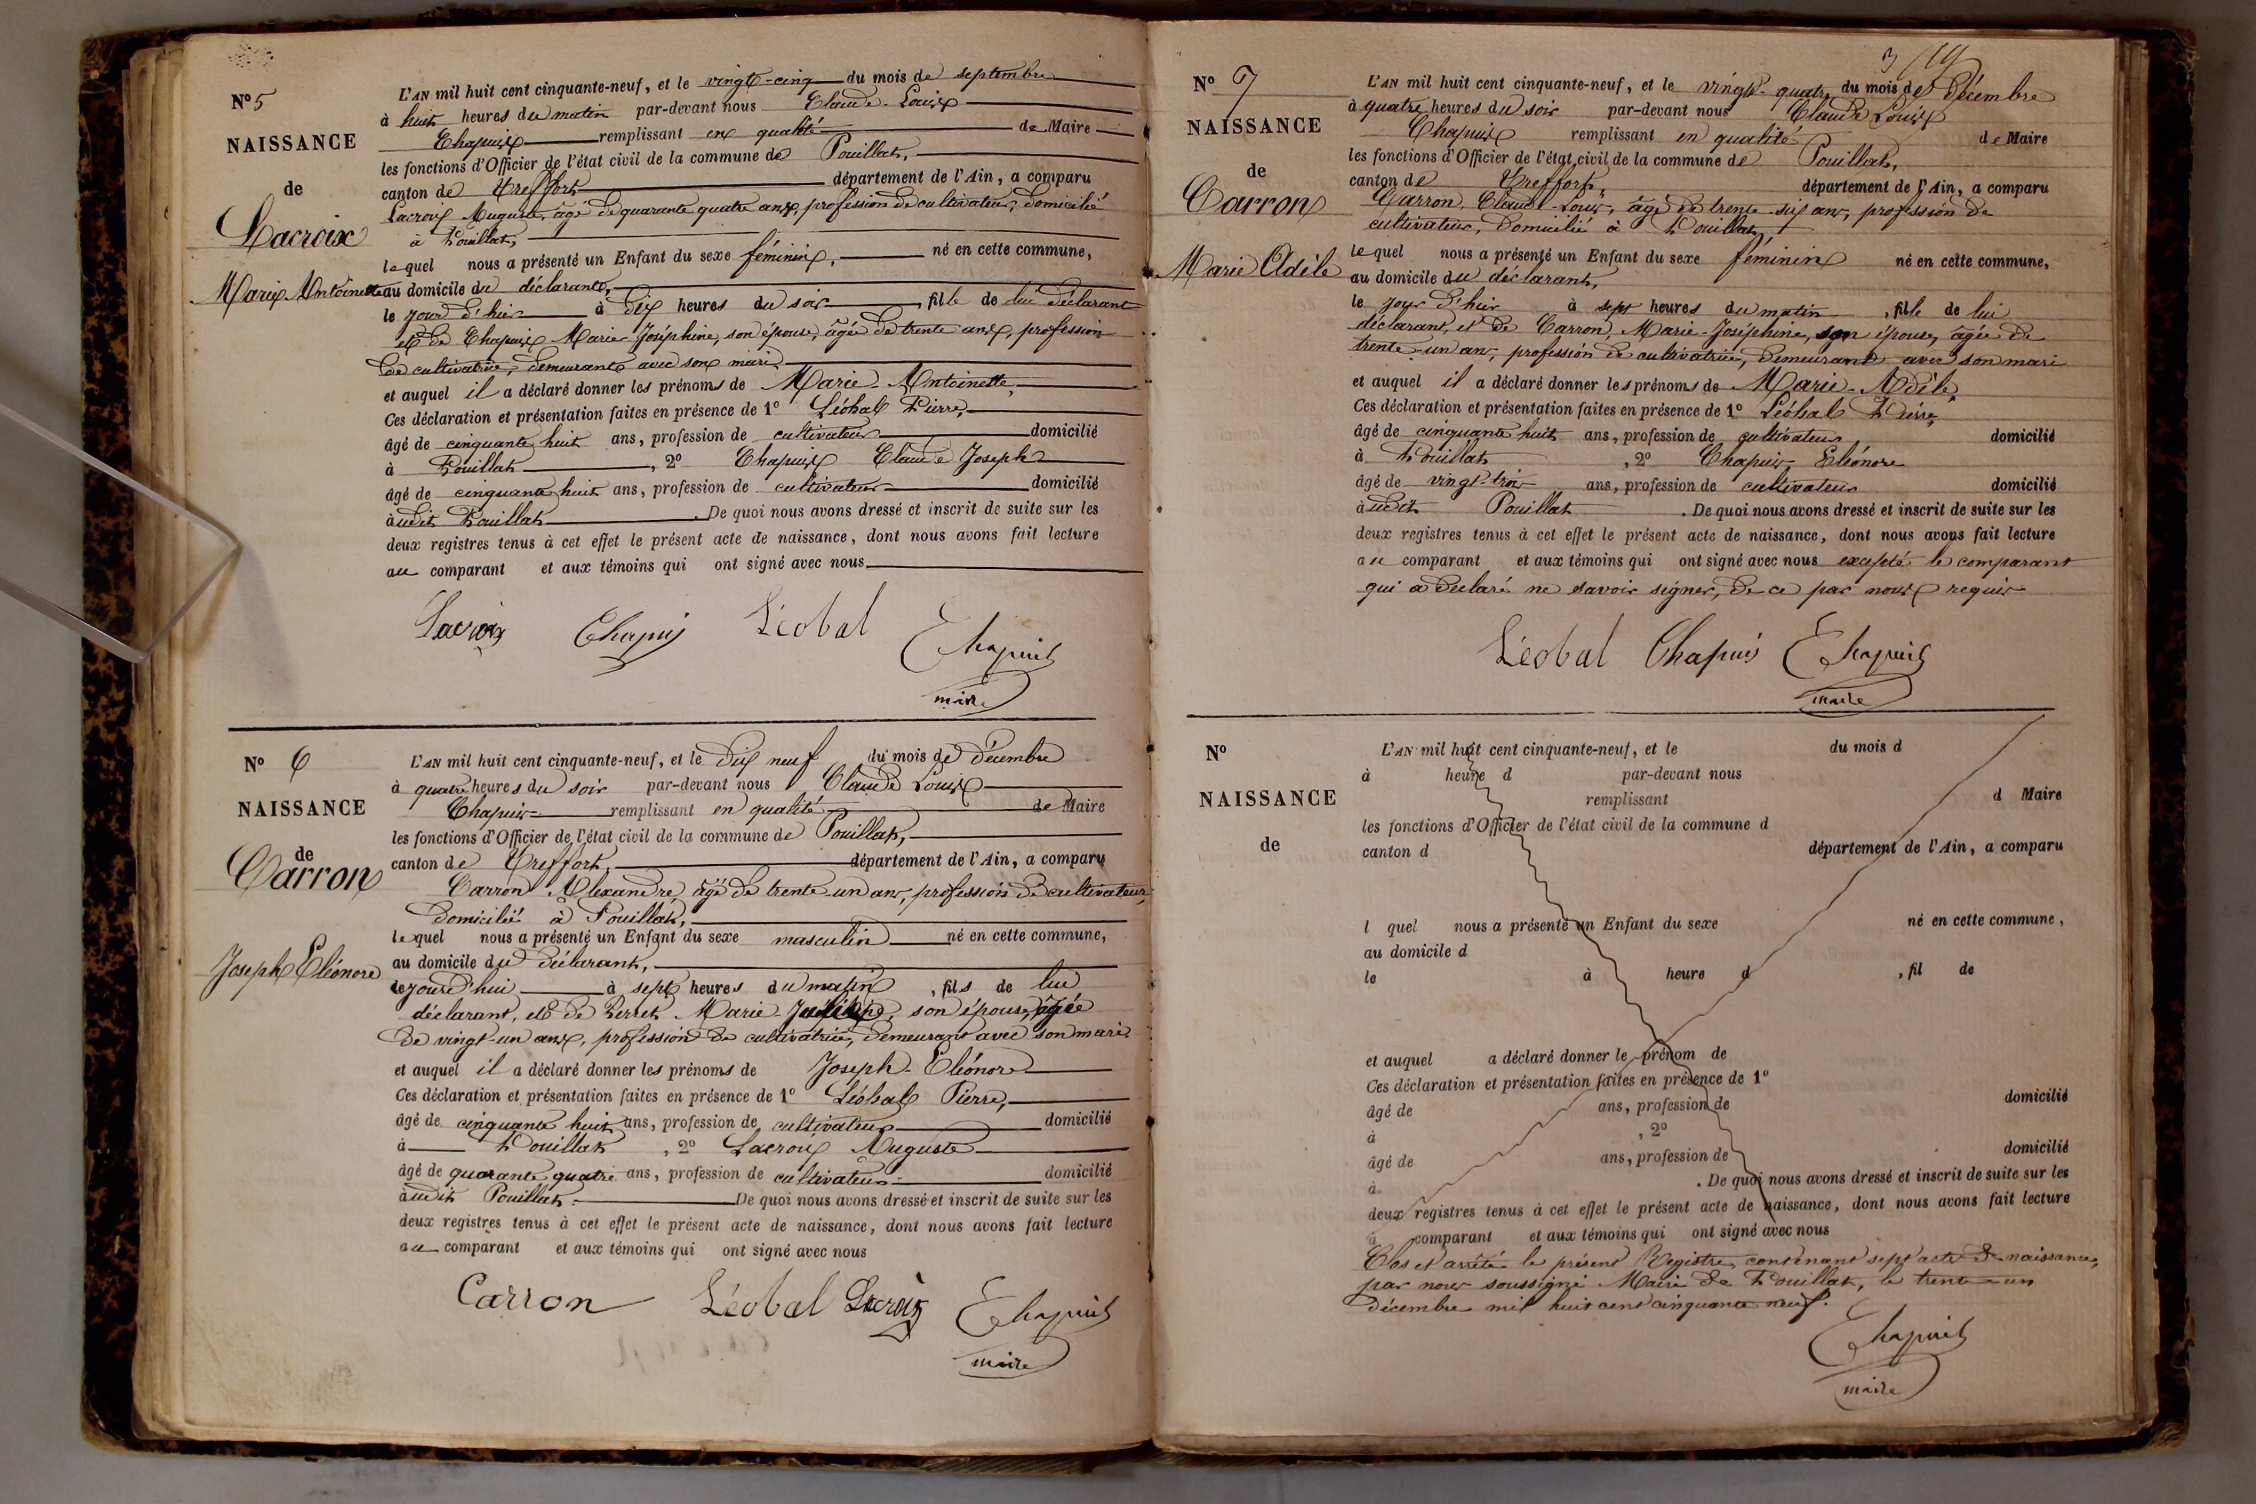 N° 5
NAISSANCE
de
Lacroix
Marie Antoinette
L'AN mil huit cent cinquante-neuf, et le vingt-cinq du mois de septembre
à huit heures du matin par-devant nous Claude-Louis
Chapuis remplissant en qualité de Maire
les fonctions d'Officier de l'état civil de la commune de Pouillat,
canton de Treffort département de l'Ain, a comparu
Lacroix Auguste, âgé de quarante quatre ans, profession de cultivateur, domicilié
à Pouillat,
lequel nous a présenté un Enfant du sexe féminin, né en cette commune,
au domicile du déclarant,
le jour d'hier à dix heures du soir, fille de lui déclarant
et de Chapuis Marie-Joséphine, son épouse, âgée de trente ans, profession
de cultivatrice, demeurant avec son mari
et auquel il a déclaré donner les prénoms de Marie-Antoinette,
Ces déclaration et présentation faites en présence de 1° Léobal Pierre,
âgé de cinquante huit ans, profession de cultivateur domicilié
à Pouillat, 2° Chapuis Claude Joseph
âgé de cinquante huit ans, profession de cultivateur domicilié
audit Pouillat. De quoi nous avons dressé et inscrit de suite sur les
deux registres tenus à cet effet le présent acte de naissance, dont nous avons fait lecture
au comparant et aux témoins qui ont signé avec nous
Lacroix Chapuis Léobal Chapuis
maire
N° 6
NAISSANCE
de
Carron
Joseph Eléonore
L'AN mil huit cent cinquante-neuf, et le dix neuf du mois de décembre
à quatre heures du soir par-devant nous Claude Louis
Chapuis remplissant en qualité de Maire
les fonctions d'Officier de l'état civil de la commune de Pouillat,
canton de Treffort, département de l'Ain, a comparu
Carron Alexandre, âgé de trente-un ans, profession de cultivateur,
domicilié à Pouillat,
lequel nous a présenté un Enfant du sexe masculin né en cette commune,
au domicile du déclarant,
le jourd'hui à sept heures du matin, fils de lui
déclarant, et de Perret Marie son épouse, âgée
de vingt-un ans, profession de cultivatrice, demeurant avec son mari
et auquel il a déclaré donner les prénoms de Joseph-Eléonore
Ces déclaration et présentation faites en présence de 1° Léobal Pierre,
âgé de cinquante huit ans, profession de cultivateur domicilié
à Pouillat, 2° Lacroix Auguste
âgé de quarante quatre ans, profession de cultivateur domicilié
audit Pouillat. De quoi nous avons dressé et inscrit de suite sur les
deux registres tenus à cet effet le présent acte de naissance, dont nous avons fait lecture
au comparant et aux témoins qui ont signé avec nous
Carron Léobal Lacroix Chapuis
maire
N° 7
NAISSANCE
de
Carron
Marie Adèle
L'AN mil huit cent cinquante-neuf, et le vingt-quatre du mois de décembre
à quatre heures du soir par-devant nous Claude Louis
Chapuis remplissant en qualité de Maire
les fonctions d'Officier de l'état civil de la commune de Pouillat,
canton de Treffort, département de l'Ain, a comparu
Carron Claude-Louis, âgé de trente-six ans, profession de
cultivateur, domicilié à Pouillat,
lequel nous a présenté un Enfant du sexe féminin né en cette commune,
au domicile du déclarant,
le jour d'hier à sept heures du matin, fille de lui
déclarant, et de Carron, Marie-Joséphine, son épouse, âgée de
trente-un ans, profession de cultivatrice, demeurant avec son mari
et auquel il a déclaré donner les prénoms de Marie-Adèle,
Ces déclaration et présentation faites en présence de 1° Léobal Pierre,
âgé de cinquante huit ans, profession de cultivateur domicilié
à Pouillat, 2° Chapuis Eléonore
âgé de vingt-trois ans, profession de cultivateur domicilié
audit Pouillat. De quoi nous avons dressé et inscrit de suite sur les
deux registres tenus à cet effet le présent acte de naissance, dont nous avons fait lecture
au comparant et aux témoins qui ont signé avec nous excepté le comparant
qui a déclaré ne savoir signer, de ce par nous requis
Léobal Chapuis Chapuis
maire
N°
NAISSANCE
de
L'AN mil huit cent cinquante-neuf, et le du mois d
à heure d par-devant nous
remplissant d Maire
les fonctions d'Officier de l'état civil de la commune d
canton d département de l'Ain, a comparu
l quel nous a présenté un Enfant du sexe né en cette commune,
au domicile d
le à heure d , fil de
et auquel a déclaré donner le prénom de
Ces déclaration et présentation faites en présence de 1°
âgé de ans, profession de domicilié
à , 2°
âgé de ans, profession de domicilié
à . De quoi nous avons dressé et inscrit de suite sur les
deux registres tenus à cet effet le présent acte de naissance, dont nous avons fait lecture
a comparant et aux témoins qui ont signé avec nous
Clos et arrêté le présent Registre contenant sept actes de naissances,
par nous soussigné Maire de Pouillat, le trente-un
décembre mil huit cent cinquante neuf.
Chapuis
maire